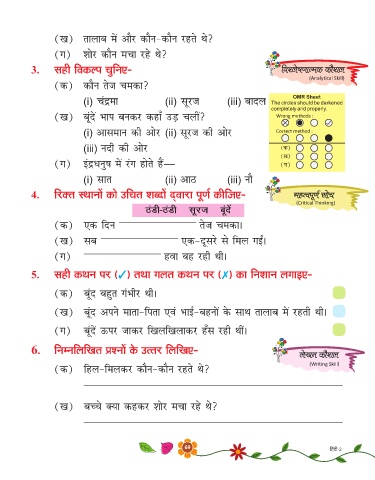 (ख) तालाब में और कौन-कौन रहते थे?
(ग) शोर कौन मचा रहे थे?
3. सही विकल्प चुनिए-
विश्लेषणात्मक कौशल
(Analytical Skill)
(क) कौन तेज चमका?
(i) चंद्रमा (ii) सूरज (iii) बादल
(ख) बूंदें भाप बनकर कहाँ उड़ चलीं?
(i) आसमान की ओर (ii) सूरज की ओर
(iii) नदी की ओर
(ग) इंद्रधनुष में रंग होते हैं—
(i) सात (ii) आठ (iii) नौ
OMR Sheet
The circles should be darkened
completely and properly.
Wrong methods :
Correct method :
(क)
(ख)
(ग)
4. रिक्त स्थानों को उचित शब्दों द्वारा पूर्ण कीजिए-
महत्वपूर्ण सोच
(Critical Thinking)
ठंडी-ठंडी सूरज बूंदें
(क) एक दिन तेज चमका।
(ख) सब एक-दूसरे से मिल गईं।
(ग) हवा बह रही थी।
5. सही कथन पर (✓) तथा गलत कथन पर (✗) का निशान लगाइए-
(क) बूंद बहुत गंभीर थी।
(ख) बूंद अपने माता-पिता एवं भाई-बहनों के साथ तालाब में रहती थी।
(ग) बूंदें ऊपर जाकर खिलखिलाकर हँस रही थीं।
6. निम्नलिखित प्रश्नों के उत्तर लिखिए-
लेखन कौशल
(Writing Skill)
(क) हिल-मिलकर कौन-कौन रहते थे?
(ख) बच्चे क्या कहकर शोर मचा रहे थे?
हिंदी-2